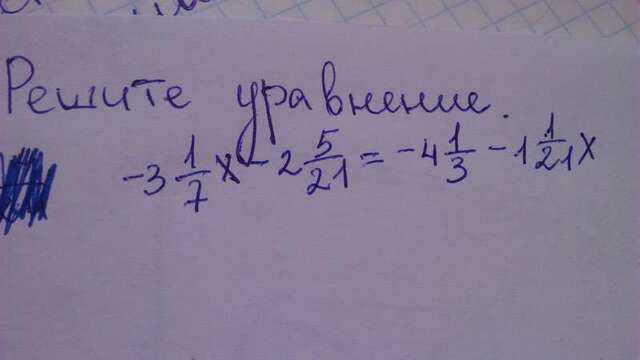 Решите уравнение.
-3 1/7 x - 2 5/21 = -4 1/3 - 1 1/21 x